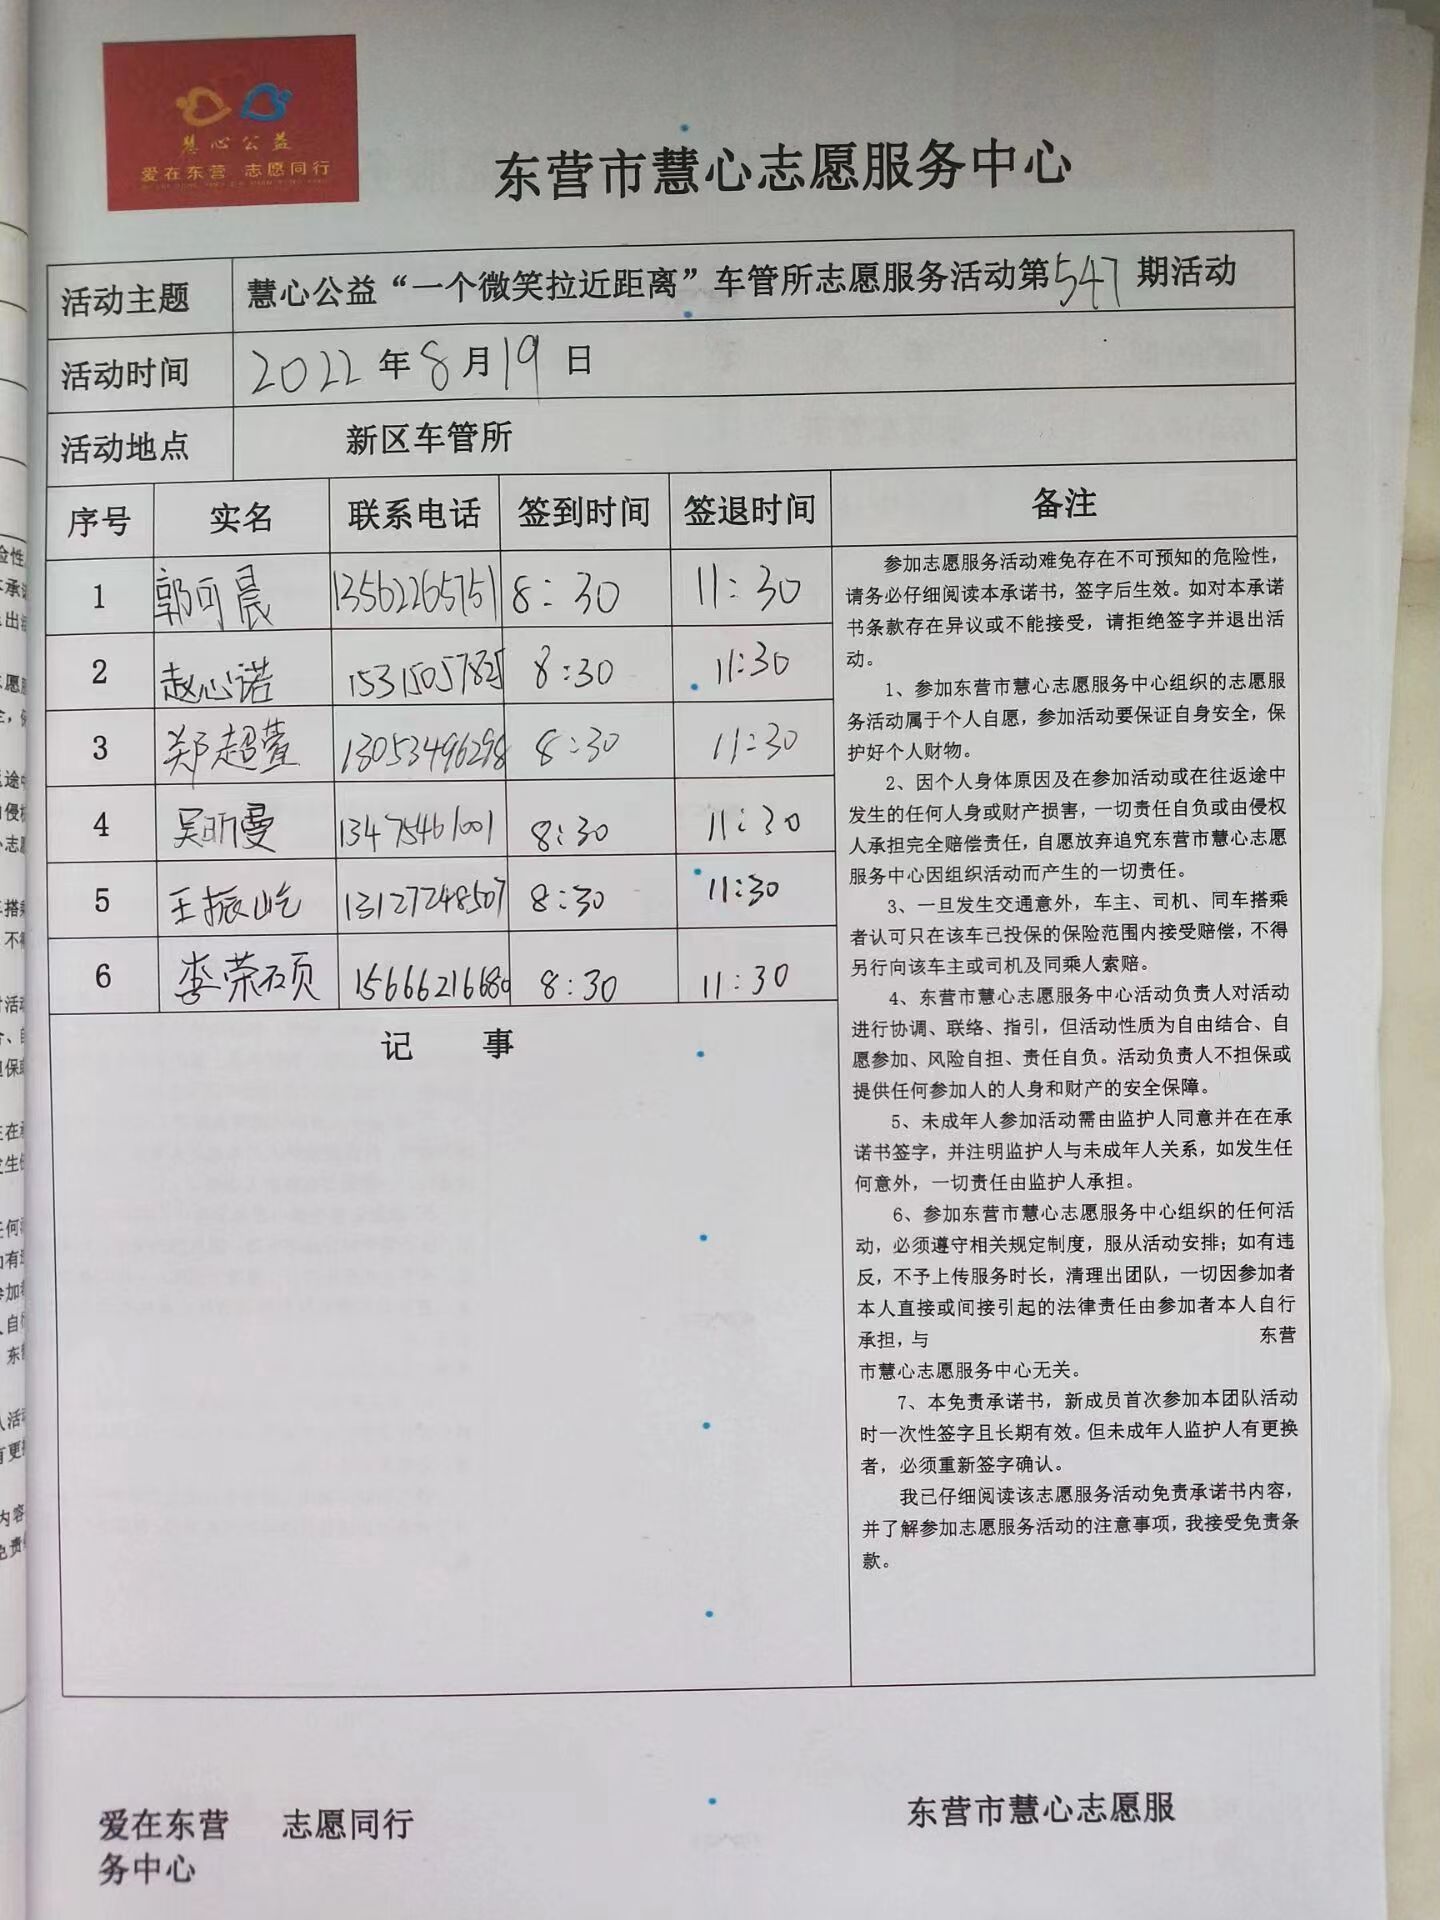 慧心公益
爱在东营 志愿同行
东营市慧心志愿服务中心
活动主题 慧心公益“一个微笑拉近距离”车管所志愿服务活动第547期活动
活动时间 2022年8月19日
活动地点 新区车管所
序号 实名 联系电话 签到时间 签退时间 备注
1 郭可晨 13562265751 8:30 11:30
2 赵心诺 15315057825 8:30 11:30
3 郑超萱 13053496298 8:30 11:30
4 吴昕曼 13475461001 8:30 11:30
5 王振屹 13127248507 8:30 11:30
6 李荣硕 1566621668 8:30 11:30
记 事
参加志愿服务活动难免存在不可预知的危险性,
请务必仔细阅读本承诺书，签字后生效。如对本承诺
书条款存在异议或不能接受，请拒绝签字并退出活
动。
1、参加东营市慧心志愿服务中心组织的志愿服
务活动属于个人自愿，参加活动要保证自身安全，保
护好个人财物。
2、因个人身体原因及在参加活动或在往返途中
发生的任何人身或财产损害，一切责任自负或由侵权
人承担完全赔偿责任，自愿放弃追究东营市慧心志愿
服务中心因组织活动而产生的一切责任。
3、一旦发生交通意外，车主、司机、同车搭乘
者认可只在该车已投保的保险范围内接受赔偿，不得
另行向该车主或司机及同乘人索赔。
4、东营市慧心志愿服务中心活动负责人对活动
进行协调、联络、指引，但活动性质为自由结合、自
愿参加、风险自担、责任自负。活动负责人不担保或
提供任何参加人的人身和财产的安全保障。
5、未成年人参加活动需由监护人同意并在在承
诺书签字，并注明监护人与未成年人关系，如发生任
何意外，一切责任由监护人承担。
6、参加东营市慧心志愿服务中心组织的任何活
动，必须遵守相关规定制度，服从活动安排；如有违
反，不予上传服务时长，清理出团队，一切因参加者
本人直接或间接引起的法律责任由参加者本人自行
承担，与 东营
市慧心志愿服务中心无关。
7、本免责承诺书，新成员首次参加本团队活动
时一次性签字且长期有效。但未成年人监护人有更换
者，必须重新签字确认。
我已仔细阅读该志愿服务活动免责承诺书内容，
并了解参加志愿服务活动的注意事项，我接受免责条
款。
爱在东营 志愿同行 东营市慧心志愿服
务中心